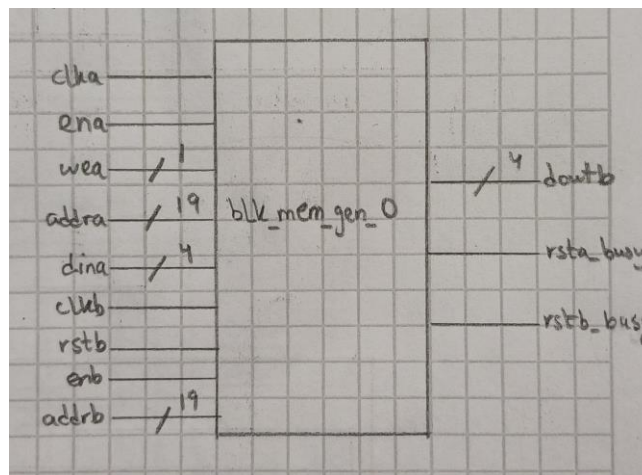 clka
ena
wea 1
addra 19
dina 4
clkb
rstb
enb
addrb 19
blk_mem_gen_0
4 doutb
rsta_busy
rstb_busy